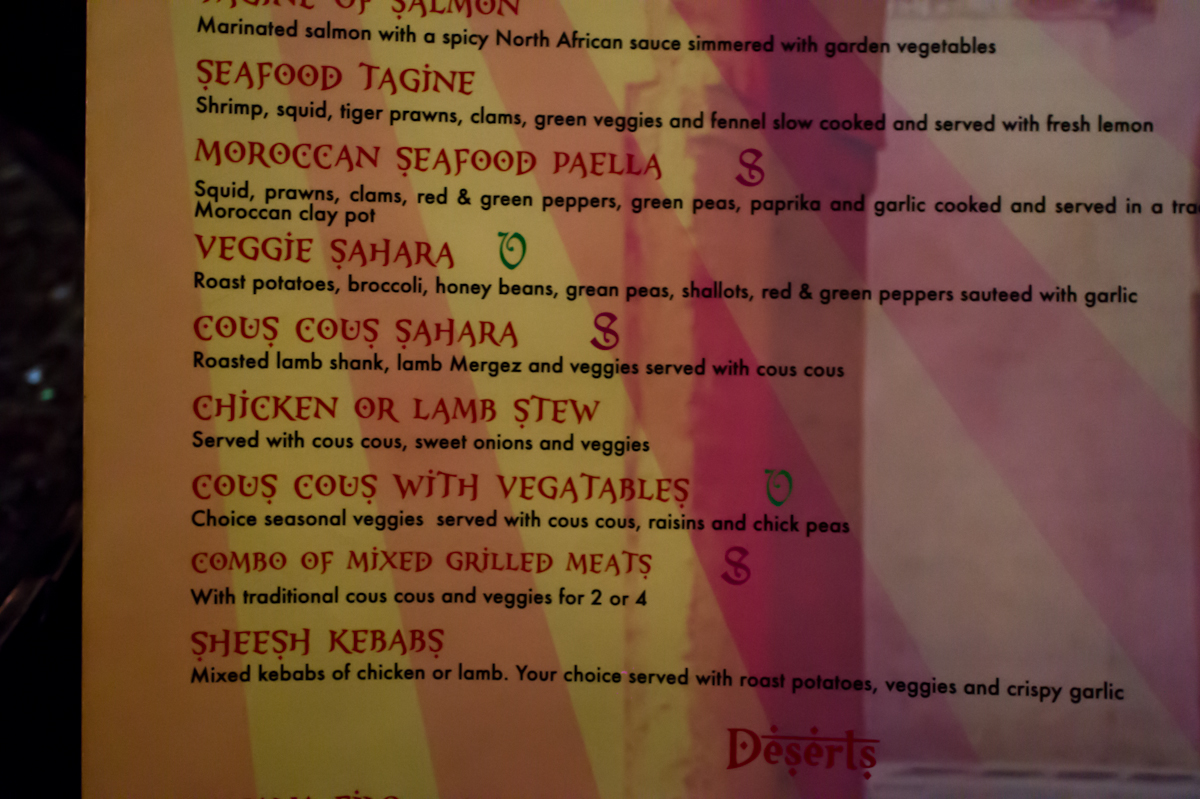 TAGINE OF SALMON
Marinated salmon with a spicy North African sauce simmered with garden vegetables
SEAFOOD TAGINE
Shrimp, squid, tiger prawns, clams, green veggies and fennel slow cooked and served with fresh lemon
MOROCCAN SEAFOOD PAELLA S
Squid, prawns, clams, red & green peppers, green peas, paprika and garlic cooked and served in a tra
Moroccan clay pot
VEGGIE SAHARA V
Roast potatoes, broccoli, honey beans, grean peas, shallots, red & green peppers sauteed with garlic
COUS COUS SAHARA S
Roasted lamb shank, lamb Mergez and veggies served with cous cous
CHICKEN OR LAMB STEW
Served with cous cous, sweet onions and veggies
COUS COUS WITH VEGATABLES V
Choice seasonal veggies served with cous cous, raisins and chick peas
COMBO OF MIXED GRILLED MEATS S
With traditional cous cous and veggies for 2 or 4
SHEESH KEBABS
Mixed kebabs of chicken or lamb. Your choice served with roast potatoes, veggies and crispy garlic
Deserts